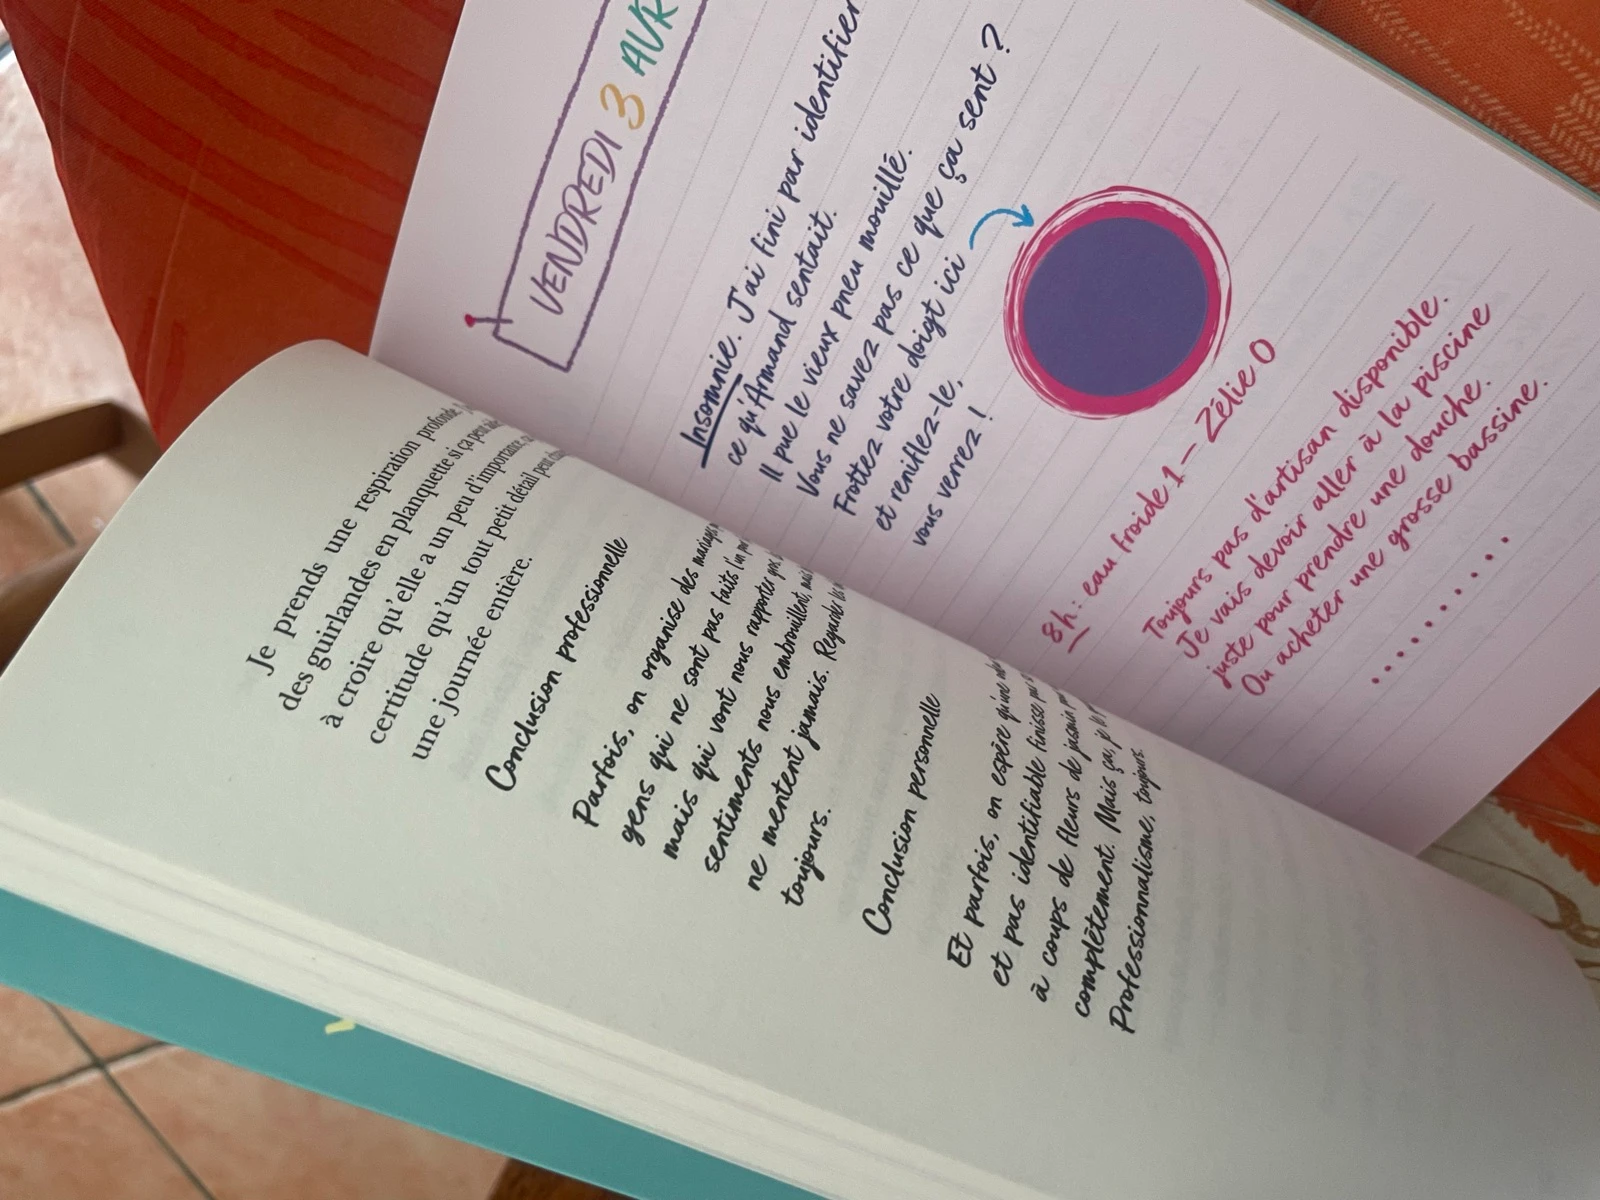 Je prends une respiration profonde.
des guirlandes en planquette si ça peut
à croire qu'elle a un peu d'importance,
certitude qu'un tout petit détail peut
une journée entière.
Conclusion professionnelle
Parfois, on organise des mariages
gens qui ne sont pas faits l'un
mais qui vont nous rapporter
sentiments nous embrouillent, mais
ne mentent jamais. Regarder
toujours.
Conclusion personnelle
Et parfois, on espère qu'une
et pas identifiable finisse par
à coups de fleurs de jasmin
complètement. Mais ça, je
Professionnalisme, toujours.
VENDREDI 3 AVR
Insomnie. J'ai fini par identifier
ce qu'Armand sentait.
Il pue le vieux pneu mouillé.
Vous ne savez pas ce que ça sent ?
Frottez votre doigt ici
et reniflez-le,
vous verrez !
8h : eau froide 1 – Zélie 0
Toujours pas d'artisan disponible.
Je vais devoir aller à la piscine
juste pour prendre une douche.
Ou acheter une grosse bassine.
..........